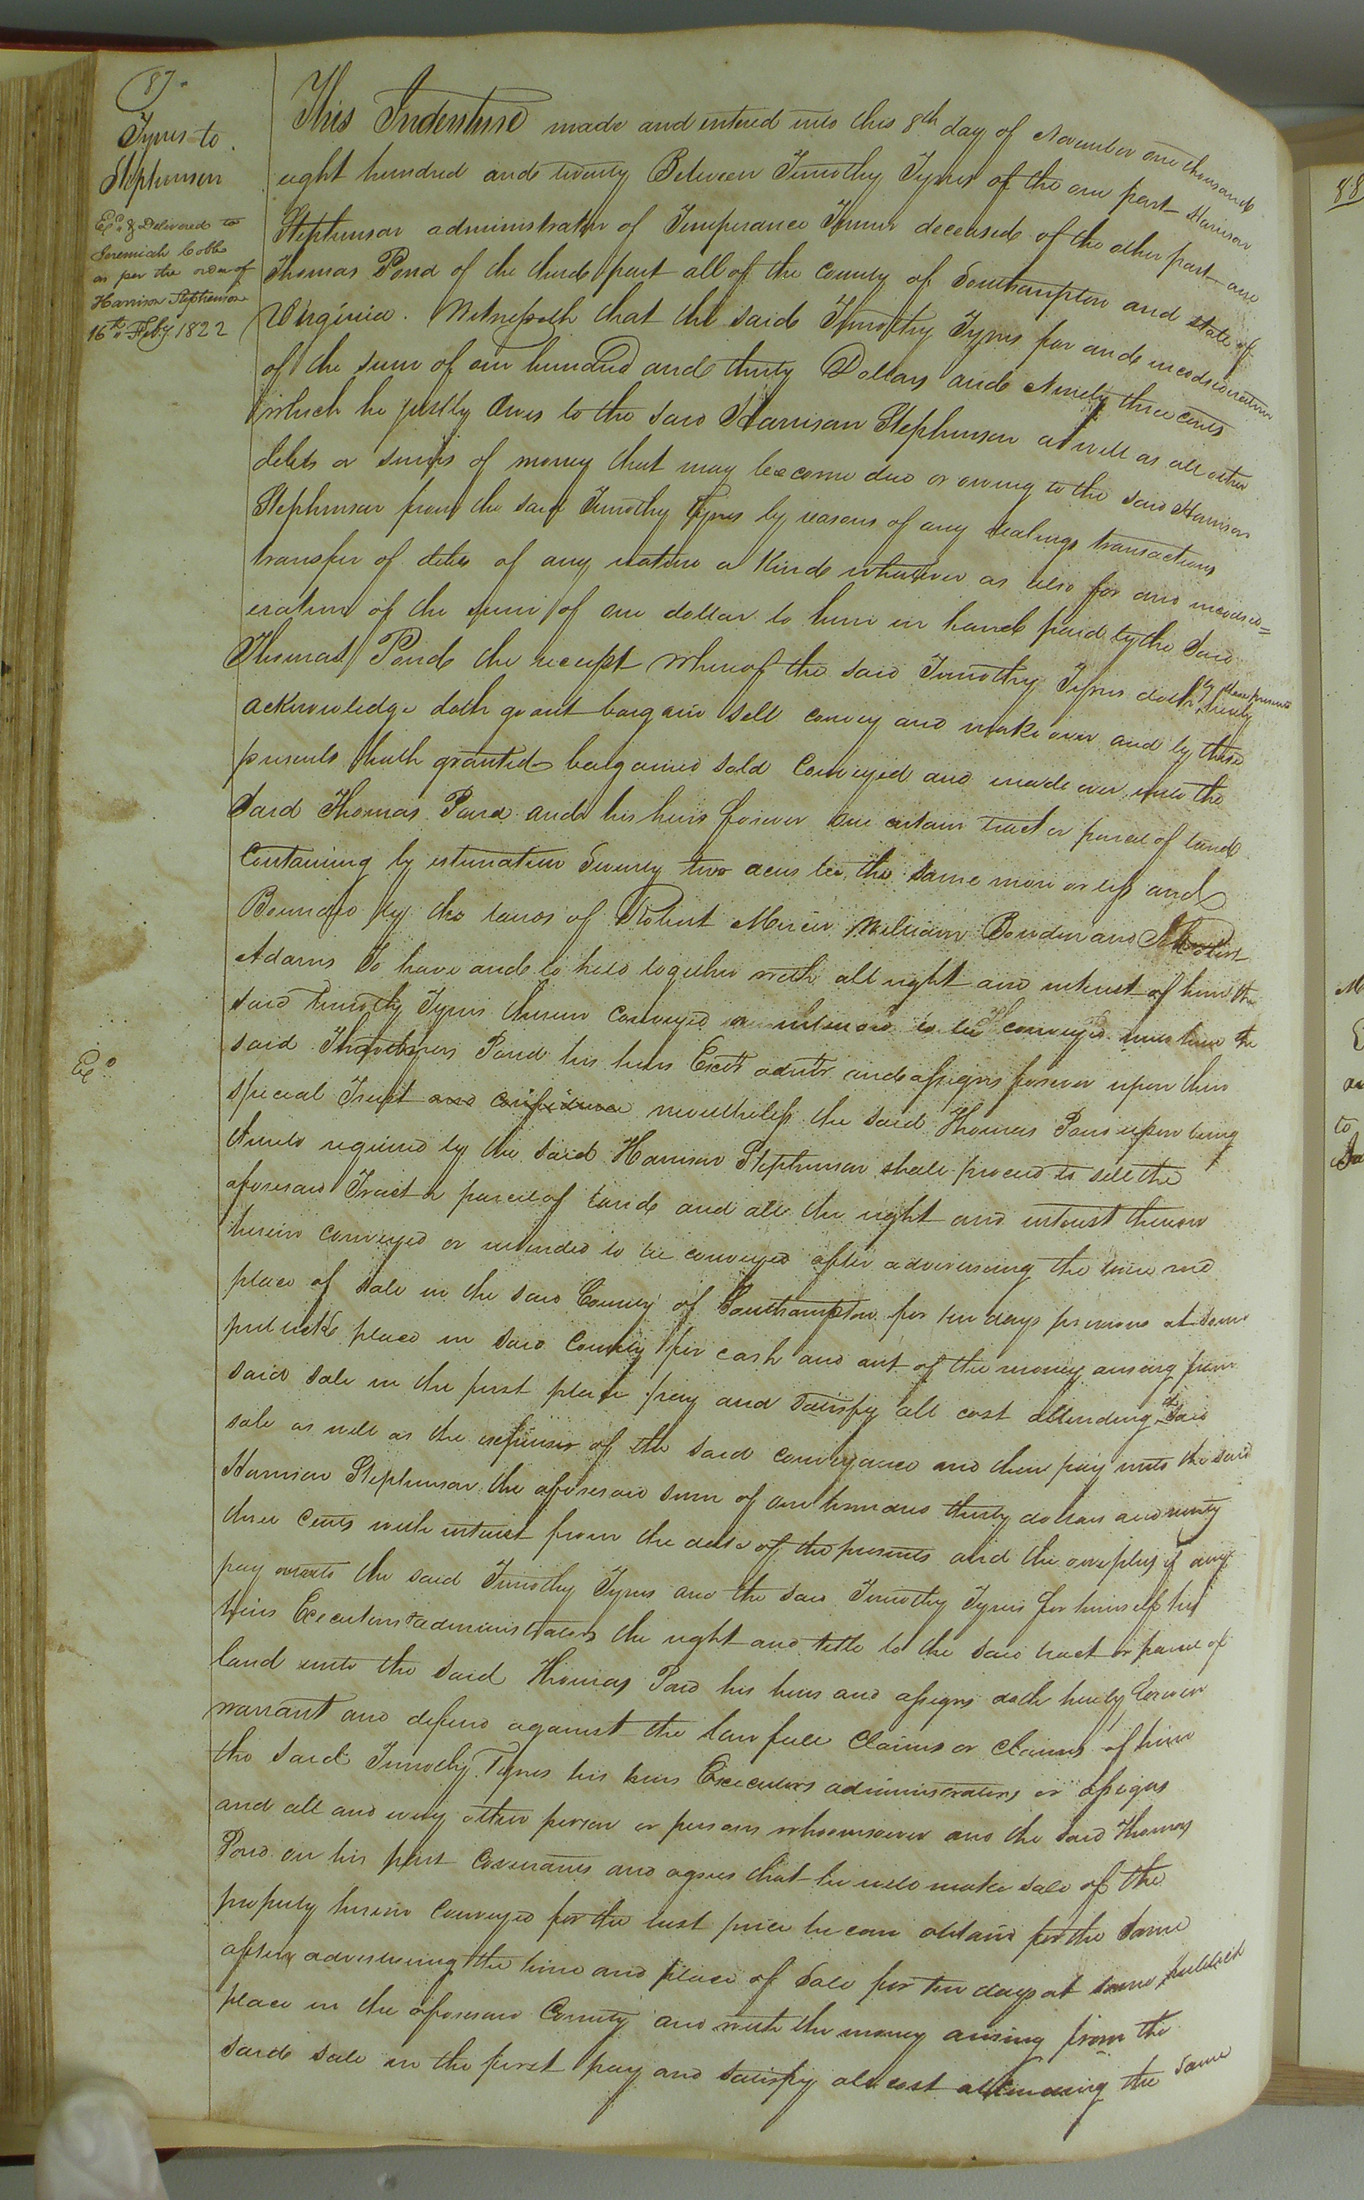 87.
Tynes to
Stephenson
Exd. & Delivered to
Jeremiah Cobb
as per the order of
Harrison Stephenson
16th Feby 1822
This Indenture made and entered into this 8th day of November one thousand
eight hundred and twenty Between Timothy Tynes of the one part Harrison
Stephenson administrator of Temperance Turner deceased of the other part and
Thomas Pond of the third part all of the County of Southampton and State of
Virginia. Witnesseth that the said Timothy Tynes for and in consideration
of the sum of one hundred and thirty Dollars and Ninety three cents
which he justly owes to the said Harrison Stephenson as well as all other
debts or sums of money that may become due or owing to the said Harrison
Stephenson from the said Timothy Tynes by reasons of any dealings transactions
transfer of debts of any nature or kind whatever as also for and in consid=
eration of the sum of one dollar to him in hand paid by the said
Thomas Pond the receipt whereof the said Timothy Tynes doth by these presents hereby
acknowledge doth grant bargain sell convey and make over and by these
presents hath granted bargained sold conveyed and made over unto the
said Thomas Pond and his heirs forever One certain tract or parcel of land
Containing by estimation Seventy two acres be the same more or less and
Bounded by the lands of Robert Mercer William Bowden and
Adams To have and to hold together with all right and interest of him the
said Timothy Tynes therein conveyed or intended to be conveyed unto him the
said Thomas Pond his heirs Exors admrs and assigns forever upon this
special Trust and confidence nevertheless the said Thomas Pond upon being
thereto required by the said Harrison Stephenson shall proceed to sell the
Exd.
aforesaid Tract or parcel of land and all the right and interest therein
herein conveyed or intended to be conveyed after advertising the time and
place of sale in the said County of Southampton for ten days previous at some
publick place in said County for cash and out of the money arising from
said sale in the first place pay and satisfy all cost attending the said
sale as well as the expenses of the said conveyance and then pay unto the said
Harrison Stephenson the aforesaid sum of one hundred thirty dollars and ninety
three cents with interest from the date of the presents and the overplus if any
pay over to the said Timothy Tynes and the said Timothy Tynes for himself his
heirs Executors & administrators the right and title to the said tract or parcel of
land unto the said Thomas Pond his heirs and assigns doth hereby forever
warrant and defend against the lawfull Claims or Claims of him
the said Timothy Tynes his heirs Executors administrators or assigns
and all and every other person or persons whomsoever and the said Thomas
Pond on his part Covenants and agrees that he will make sale of the
property herein Conveyed for the best price he can obtain for the same
after advertising the time and place of sale for ten days at some publick
place in the aforesaid County and with the money arising from the
said sale in the first pay and satisfy all cost attending the same
88